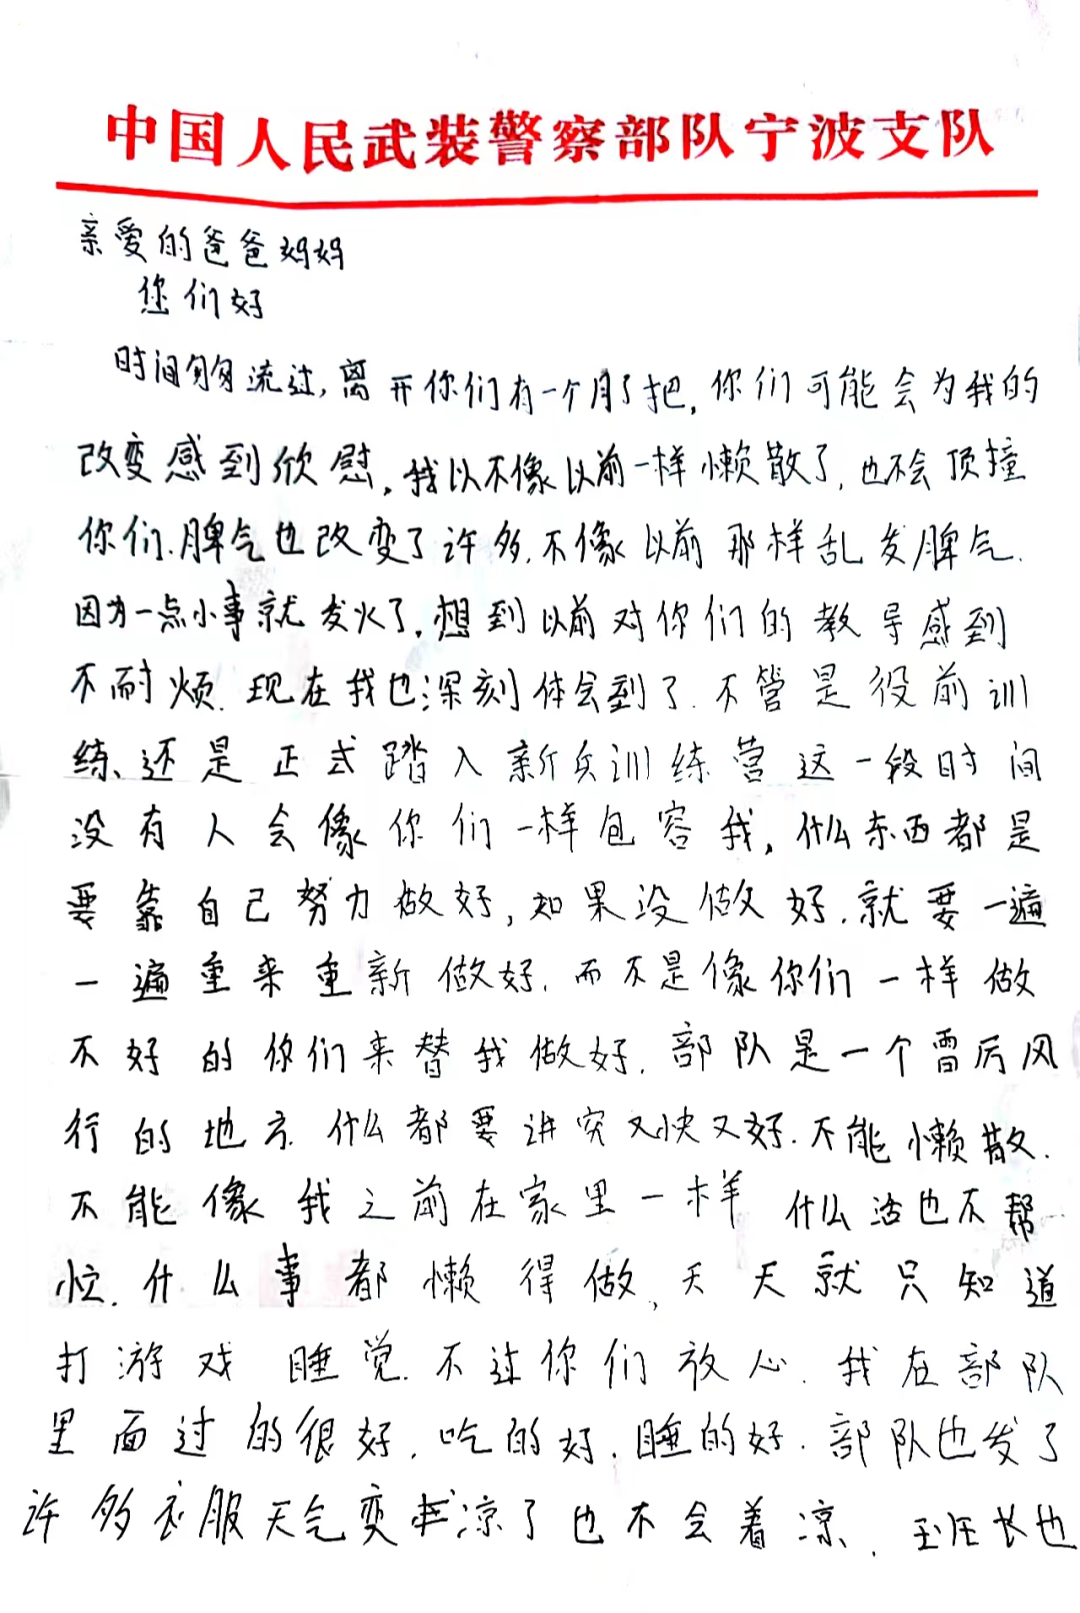 中国人民武装警察部队宁波支队
亲爱的爸爸妈妈
您们好
时间匆匆流过,离开你们有一个月了把,你们可能会为我的
改变感到欣慰,我以不像以前一样懒散了,也不会顶撞
你们.脾气也改变了许多.不像以前那样乱发脾气.
因为一点小事就发火了,想到以前对你们的教导感到
不耐烦.现在我也深刻体会到了.不管是役前训
练、还是正式踏入新兵训练营这一段时间
没有人会像你们一样包容我,什么东西都是
要靠自己努力做好,如果没做好.就要一遍
一遍重来重新做好.而不是像你们一样做
不好的你们来替我做好.部队是一个雷厉风
行的地方.什么都要讲究又快又好.不能懒散.
不能像我之前在家里一样 什么活也不帮
忙.什么事都懒得做,天天就只知道
打游戏 睡觉.不过你们放心.我在部队
里面过的很好.吃的好.睡的好.部队也发了
许多衣服天气变凉了也不会着凉.班长也